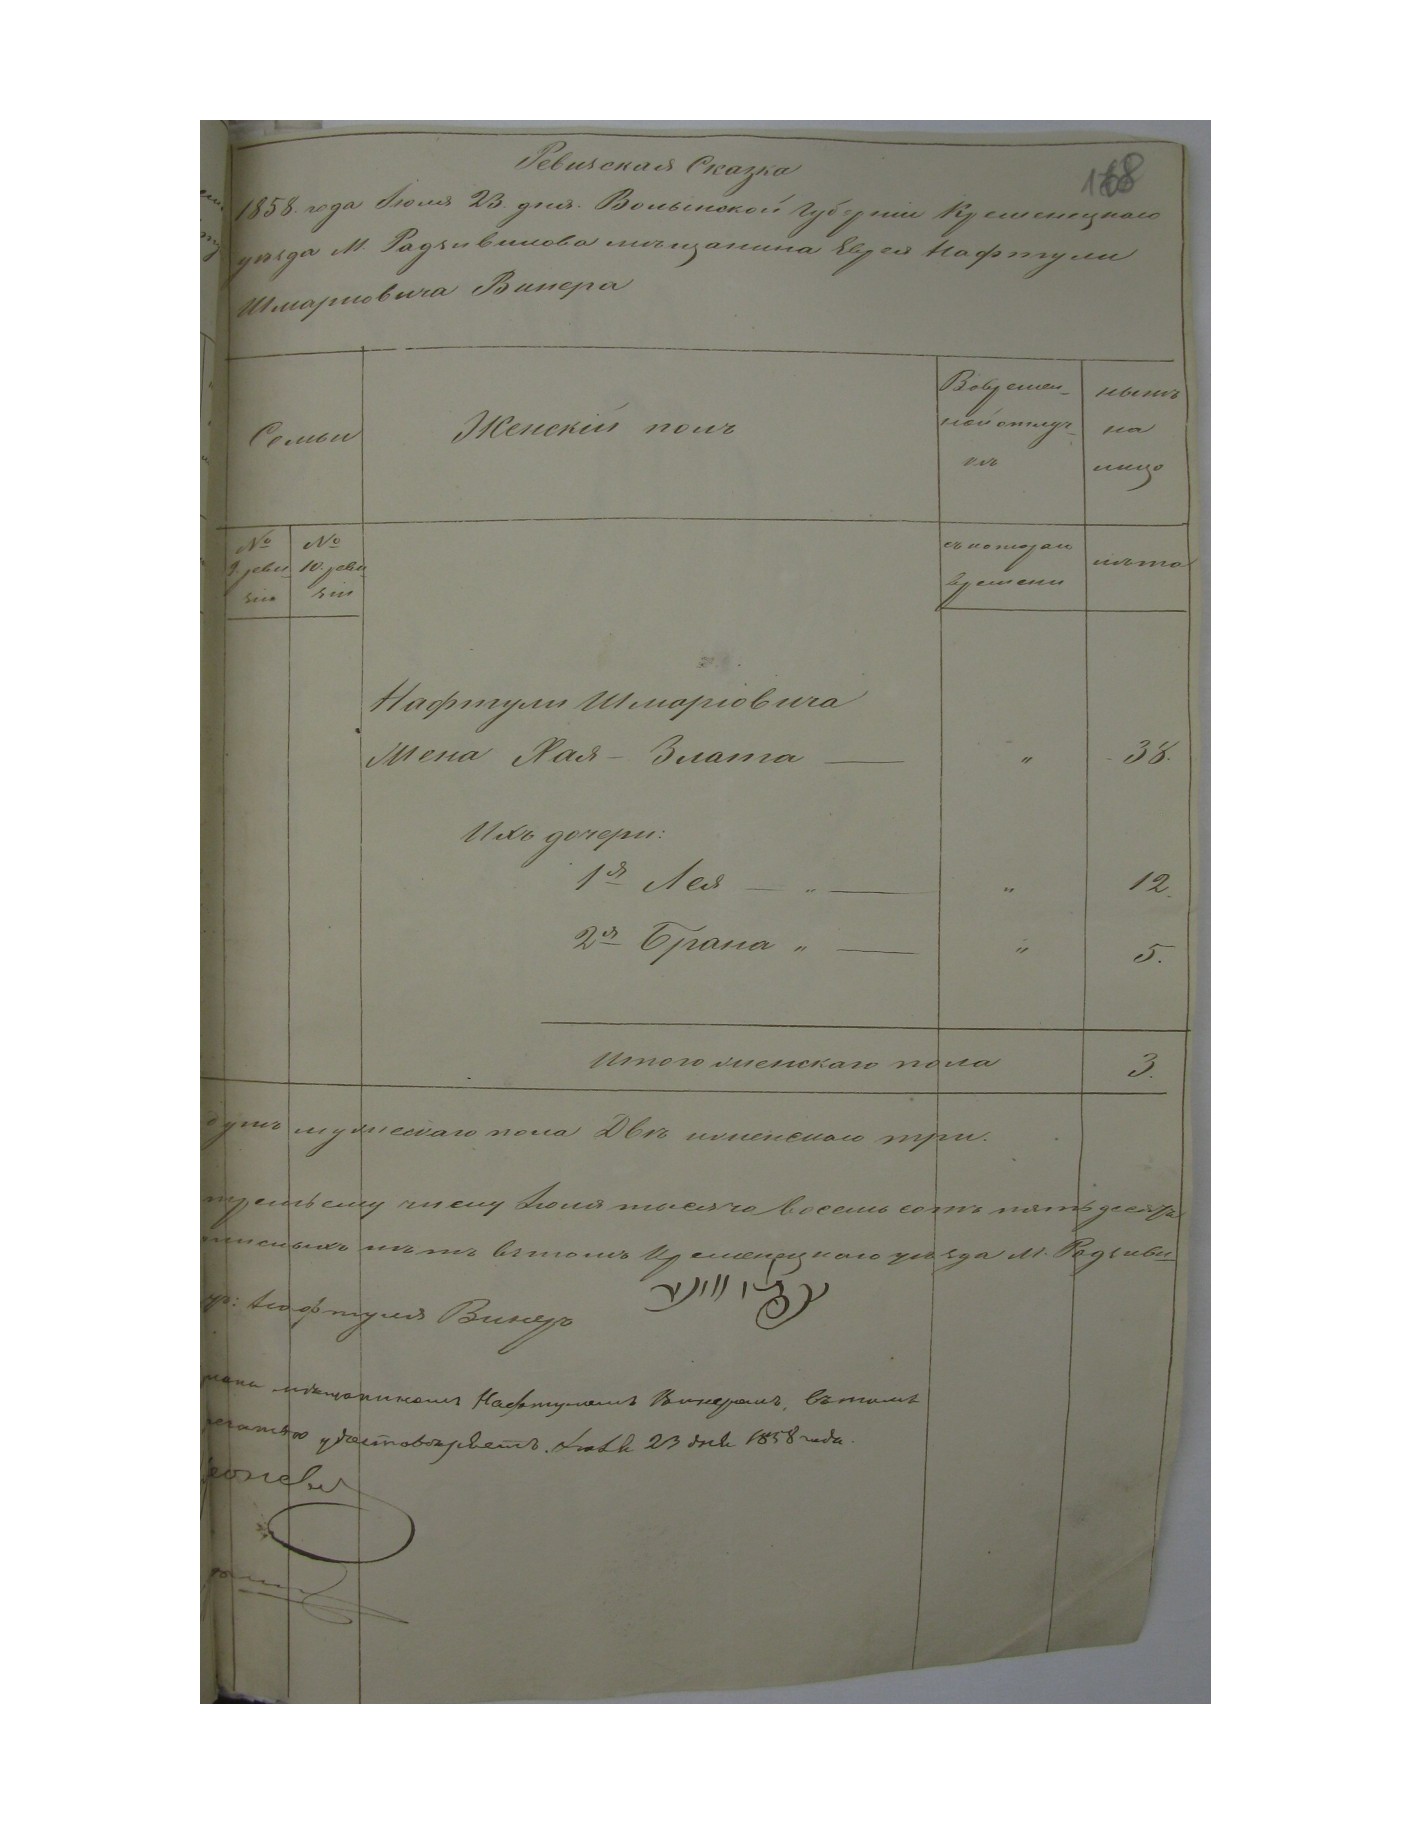 168
Ревизская Сказка
1858 года Іюля 23 дня. Волынской Губерніи Кременецкаго
уѣзда М. Радзивилова мѣщанина Еврея Нафтули
Шмаріовича Винера
Семьи
Женскій полъ
Во времен-
ной отлуч-
кѣ
нынѣ
на
лицо
№
9. реви
зіи
№
10. реви
зіи
съ котораго
времени
лѣта
Нафтули Шмаріовича
Жена Хая - Злата — " 38.
Ихъ дочери:
1я Лея — " — " 12.
2я Брана " — " 5.
Итого женскаго пола 3.
душъ мужескаго пола Двѣ и женскаго три.
третьему числу Іюля тысяча восемь сотъ пятьдесятъ
нѣтъ въ томъ Кременецкаго уѣзда М. Радзиви
Нафтуля Винеръ
мѣщаниномъ Нафтулемъ Винеромъ, въ томъ
удостовѣряетъ. 23 дня 1858 года.